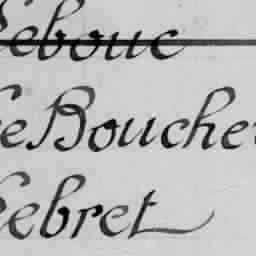 Lebouc
Le Boucher
Lebret